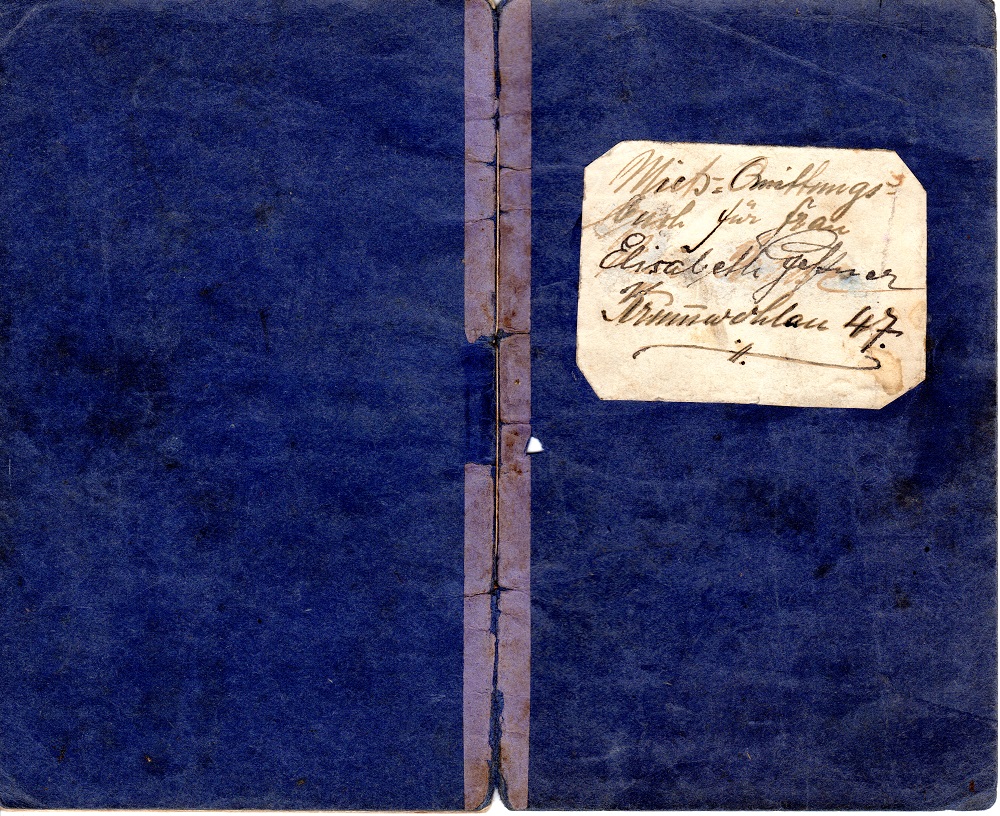 Miets=Quittungs=
buch für Frau
Elisabeth
Krumwohlau 47.